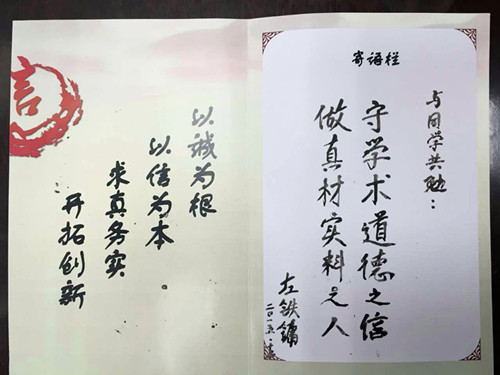 寄语栏
与同学共勉：
守学术道德之信
做真材实料之人
左铁镛
以诚为根
以信为本。
求真务实
开拓创新
言